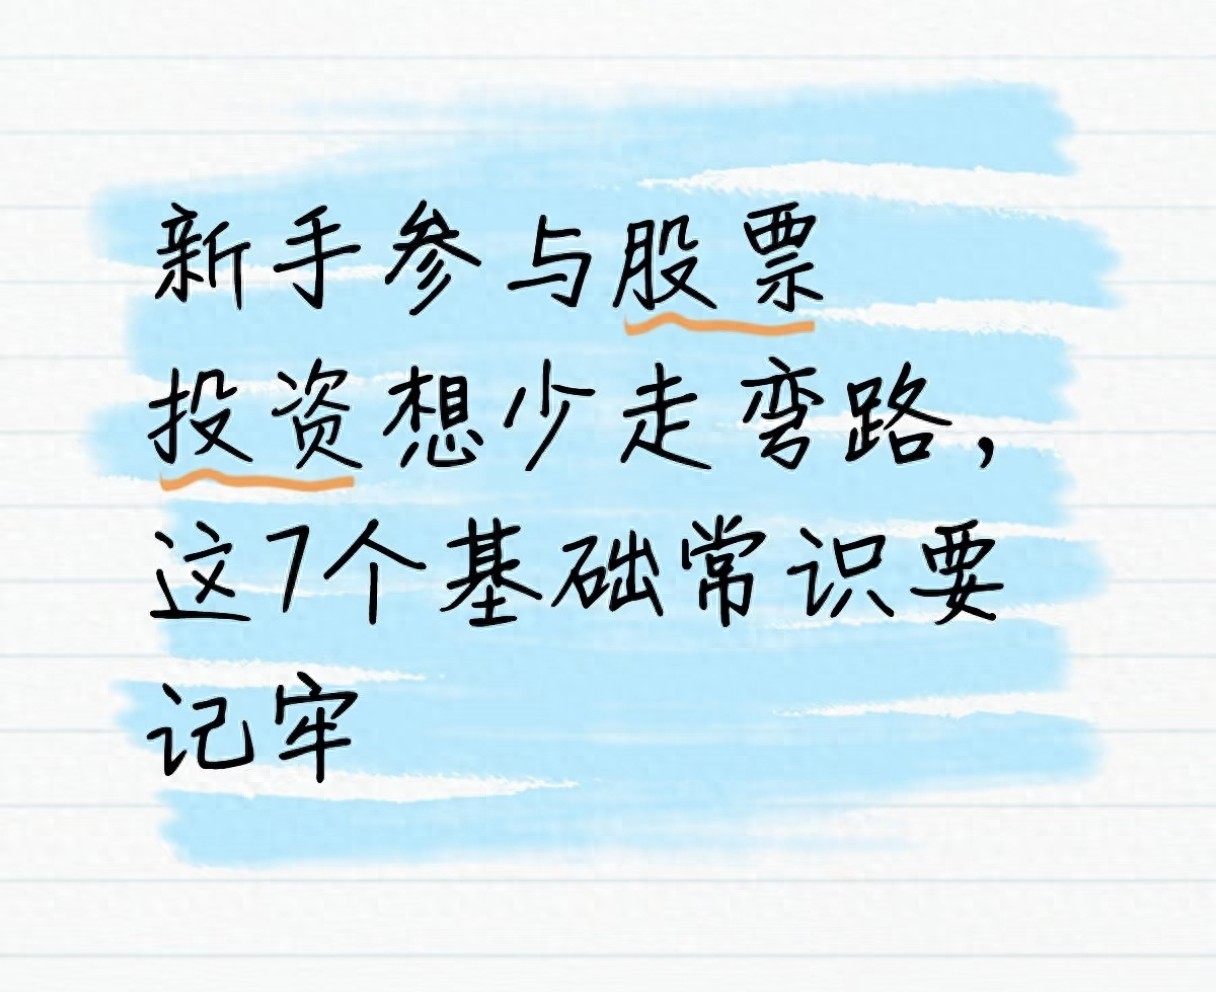 新手参与股票
投资想少走弯路，
这7个基础常识要
记牢